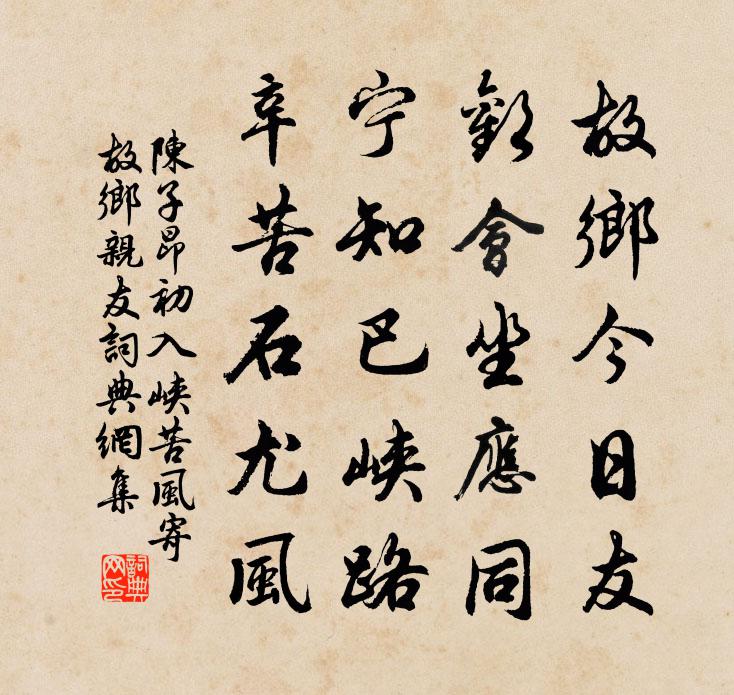 故鄉今日友
歡會坐應同
宁知巴峽路
辛苦石尤風
陳子昂初入峽苦風寄
故鄉親友詞典網集
詞典网印